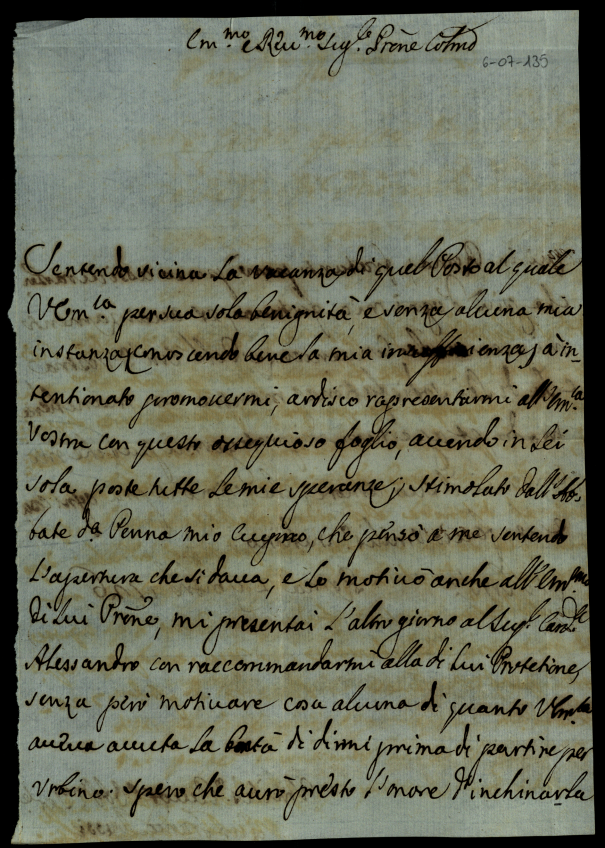 Em.mo e R.mo Sig.re Prone Colmo
6-07-135
Sentendo vicina la vacanza di quel Posto al quale
V Em.za per sua sola benignità, e senza alcuna mia
instanza (conoscendo bene la mia insufficienza) à in-
tentionato promovermi, ardisco rapresentarmi all'Em.za
Vostra con questo ossequioso foglio, avendo in Lei
sola poste tutte le mie speranze; stimolato dall'Ab-
bate da Penna mio Cugino, che pensò a me sentendo
L'apertura che si dava, e lo motivò anche all'Em.mo
di Lui Prone, mi presentai L'altro giorno al Sig.r Card.le
Alessandro con raccommandarmi alla di Lui Protetione,
senza però motivare cosa alcuna di quanto V Em.za
aveva avuta la bontà di dirmi prima di partire per
Urbino. spero che avrò presto L'onore d'inchinarla